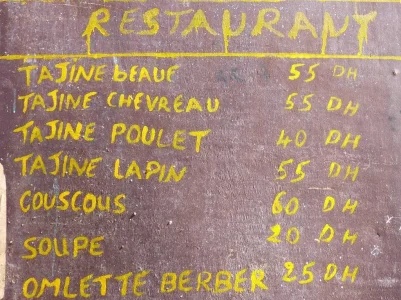 RESTAURANT
TAJINE BEAUE 55 DH
TAJINE CHEVREAU 55 DH
TAJINE POULET 40 DH
TAJINE LAPIN 55 DH
COUSCOUS 60 DH
SOUPE 20 DH
OMLETTE BERBER 25 DH